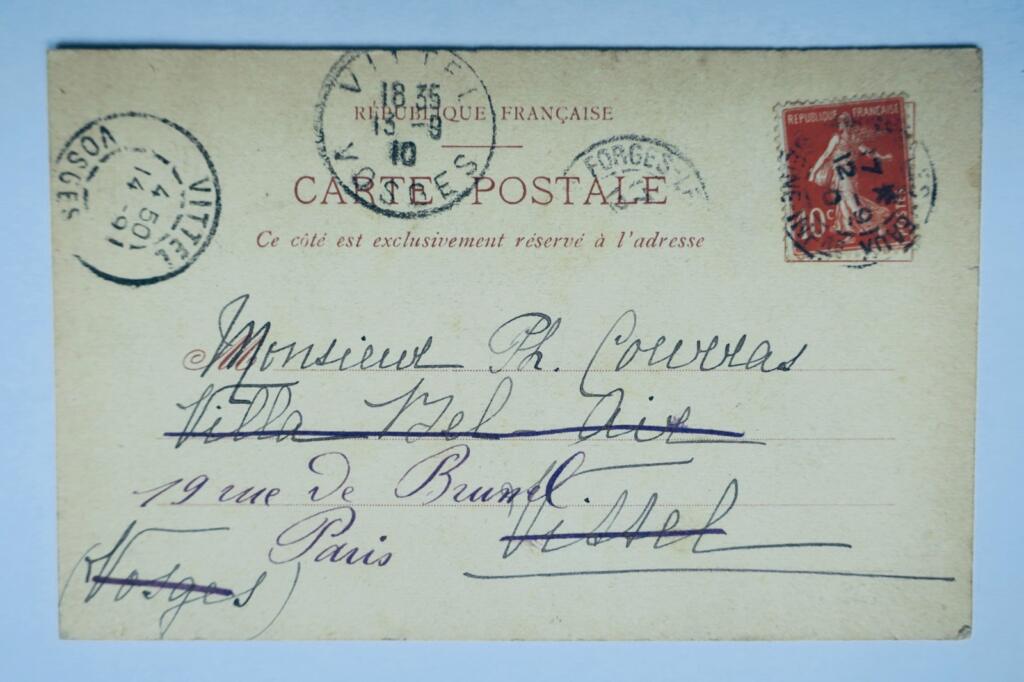 VITTEL
18 35
13 -9
10
VOSGES
RÉPUBLIQUE FRANÇAISE
CARTE POSTALE
Ce côté est exclusivement réservé à l'adresse
VITTEL
4 50
14 -9
VOSGES
FORGES-L
REPUBLIQUE FRANÇAISE
10c
12 -9
EAUX
Monsieur Ph. Couvras
Villa Bel Air
19 rue de Brunel.
Vittel
Paris
(Vosges)